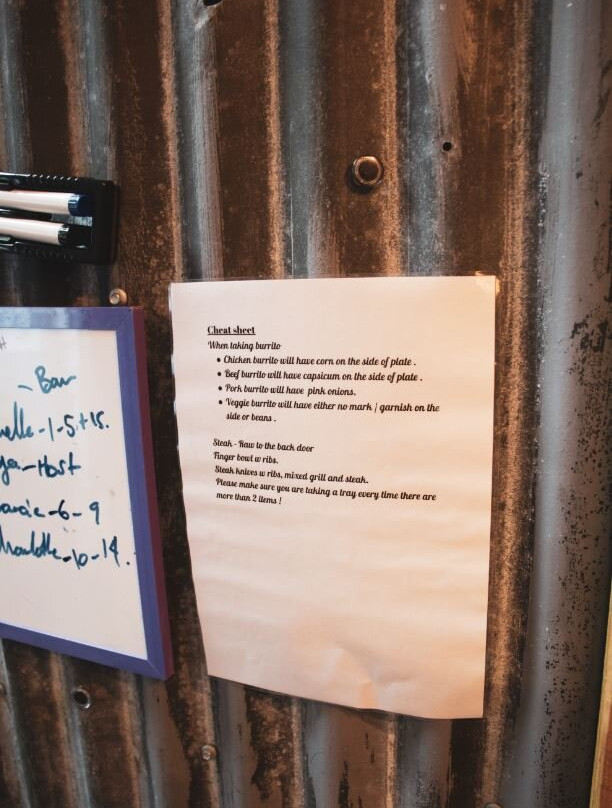 - Bar
-1-5+15.
-Host
-6-9
-10-14.
Cheat sheet
When taking burrito
• Chicken burrito will have corn on the side of plate .
• Beef burrito will have capsicum on the side of plate .
• Pork burrito will have pink onions.
• Veggie burrito will have either no mark / garnish on the
side or beans .
Steak - Raw to the back door
Finger bowl w ribs.
Steak knives w ribs, mixed grill and steak.
Please make sure you are taking a tray every time there are
more than 2 items !